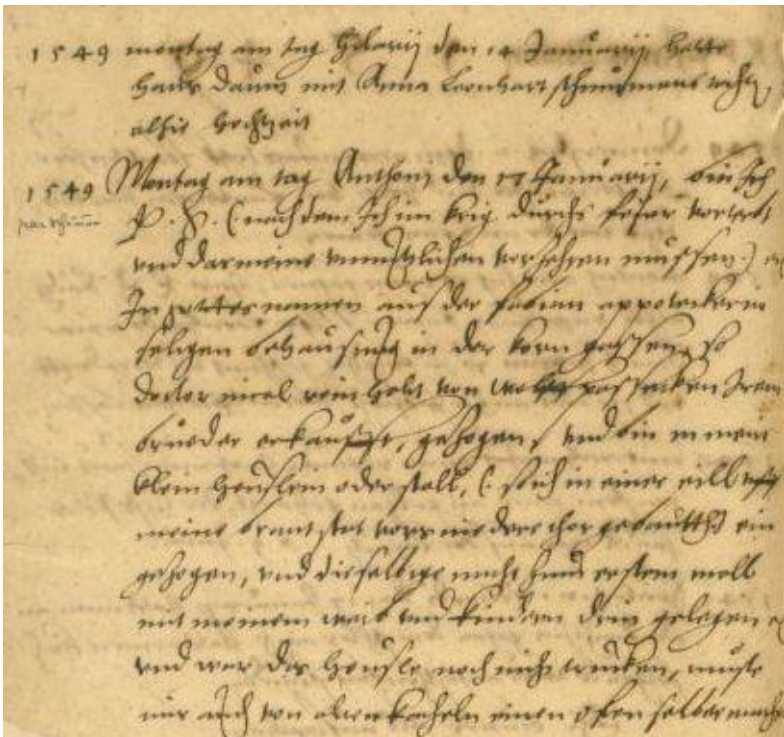 1549 montag am tag Hilarij den 14 Januarij hatte
Hans Daum mit Anna Leonhart
alhie hochzeit
1549 Montag am tag Anthonj den 17 Januarij, bin ich
P. S. (nach dem ich im krig durchs feuer
und dar meine versehen mussen)
In gottes namen aus der fabian appoteckerin
seligen behausung in der korn gassen, so
doctor nicel reinholt von irem
bruder erkaufft, gezogen, und bin in mein
klein heuslein oder stall, (: so ich in einer eill uff
meine brant stet vorm nider thor gebautthe) ein
gezogen, und dieselbige nacht zum ersten moll
mit meinem weib und kindern drin gelegen
und war das heusle noch nicht trucken, muste
mir auch von alten kacheln einen ofen selber mach